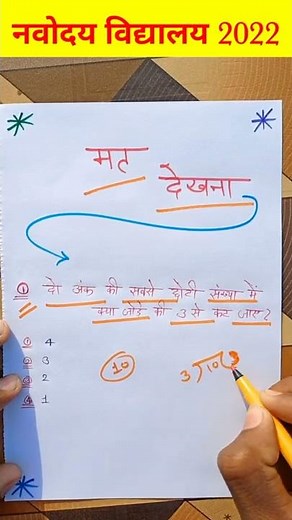 नवोदय विद्यालय 2022
मत
देखना
① दो अंक की सबसे छोटी संख्या में
क्या जोड़े की 3 से कट जाए?
① 4
② 3
③ 2
④ 1
10
3) 10 (3